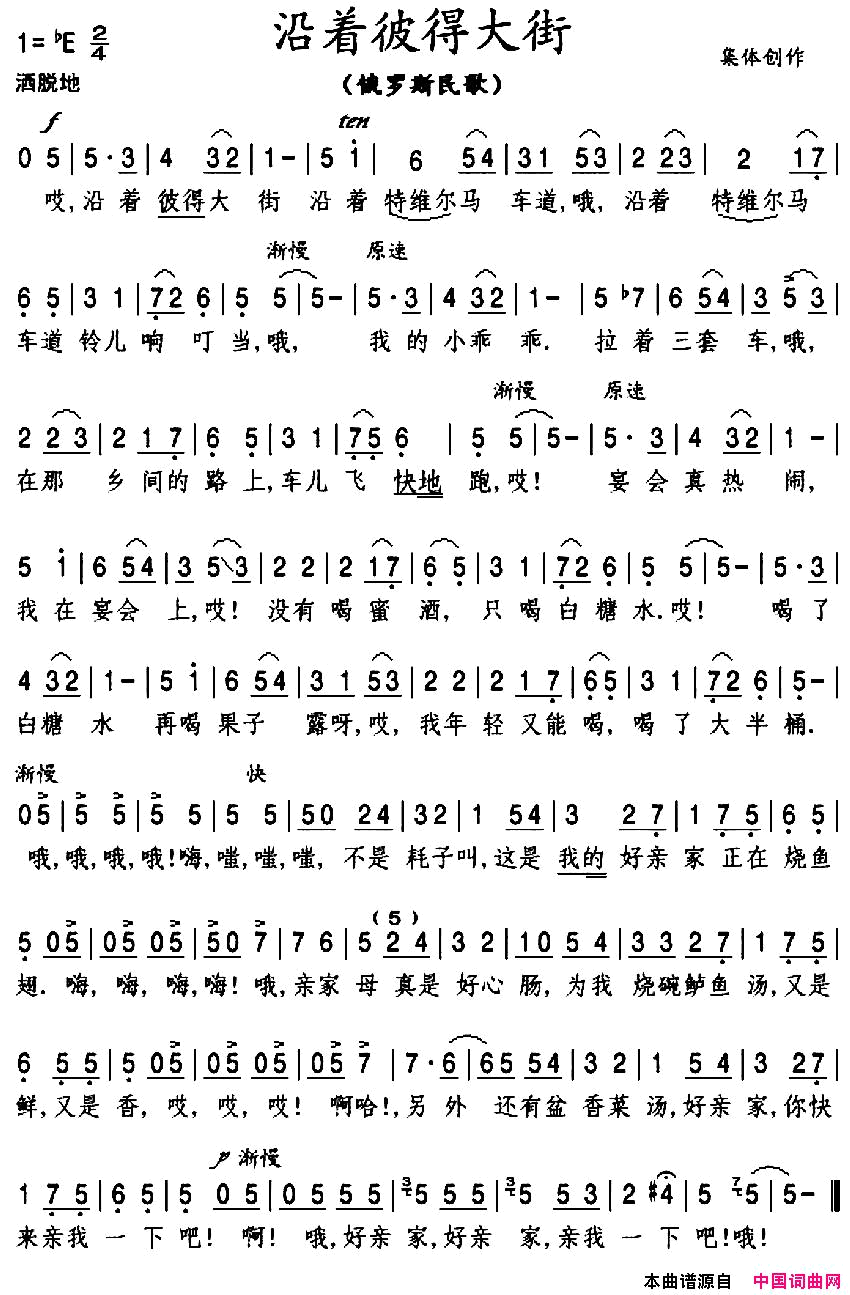 沿着彼得大街
1=♭E 2/4
集体创作
洒脱地
(俄罗斯民歌)
f ten
0 5|5·3|4 32|1-|5 i|6 54|31 53|2 23|2 17|
哎,沿着彼得大街 沿着特维尔马 车道,哦,沿着 特维尔马
渐慢 原速
6 5|3 1|72 6|5 5|5-|5·3|4 32|1-|5 ♭7|6 54|3 5 3|
车道铃儿响叮当,哦, 我的小乖乖. 拉着三套车,哦,
渐慢 原速
2 23|2 17|6 5|3 1|75 6|5 5|5-|5·3|4 32|1-|
在那 乡间的路上,车儿飞 快地 跑,哎! 宴会真热 闹,
5 i|6 54|3 5 3|2 2|2 17|6 5|3 1|72 6|5 5|5-|5·3|
我在宴会 上,哎! 没有喝蜜 酒, 只喝白糖水.哎! 喝了
4 32|1-|5 i|6 54|3 1 53|2 2|2 1 7|65|3 1|72 6|5-|
白糖 水 再喝果子 露呀,哎,我年轻又能喝,喝了大半桶.
渐慢 快
05|5 5|5 5|5 5|50 24|32|1 54|3 2 7|1 7 5|6 5|
哦,哦,哦,哦!嗨,嗤,嗤,嗤, 不是耗子叫,这是我的好亲家正在烧鱼
(5)
5 05|05 05|50 7|7 6|5 2 4|3 2|10 5 4|3 3 2 7|1 7 5|
翅. 嗨, 嗨, 嗨,嗨! 哦,亲家母真是好心肠,为我 烧碗鲈鱼汤,又是
6 5 5|5 05|05 05|05 7|7·6|65 54|3 2|1 5 4|3 27|
鲜,又是香, 哎, 哎, 哎! 啊哈!,另外 还有盆香菜汤,好亲家,你快
p 渐慢
1 7 5|6 5|5 0 5|0 5 5 5|3 5 5 5|3 5 5 3|2 #4|5 7 5|5-‖
来亲我一下吧! 啊! 哦,好亲家,好亲 家,亲我一下吧!哦!
本曲谱源自 中国词曲网